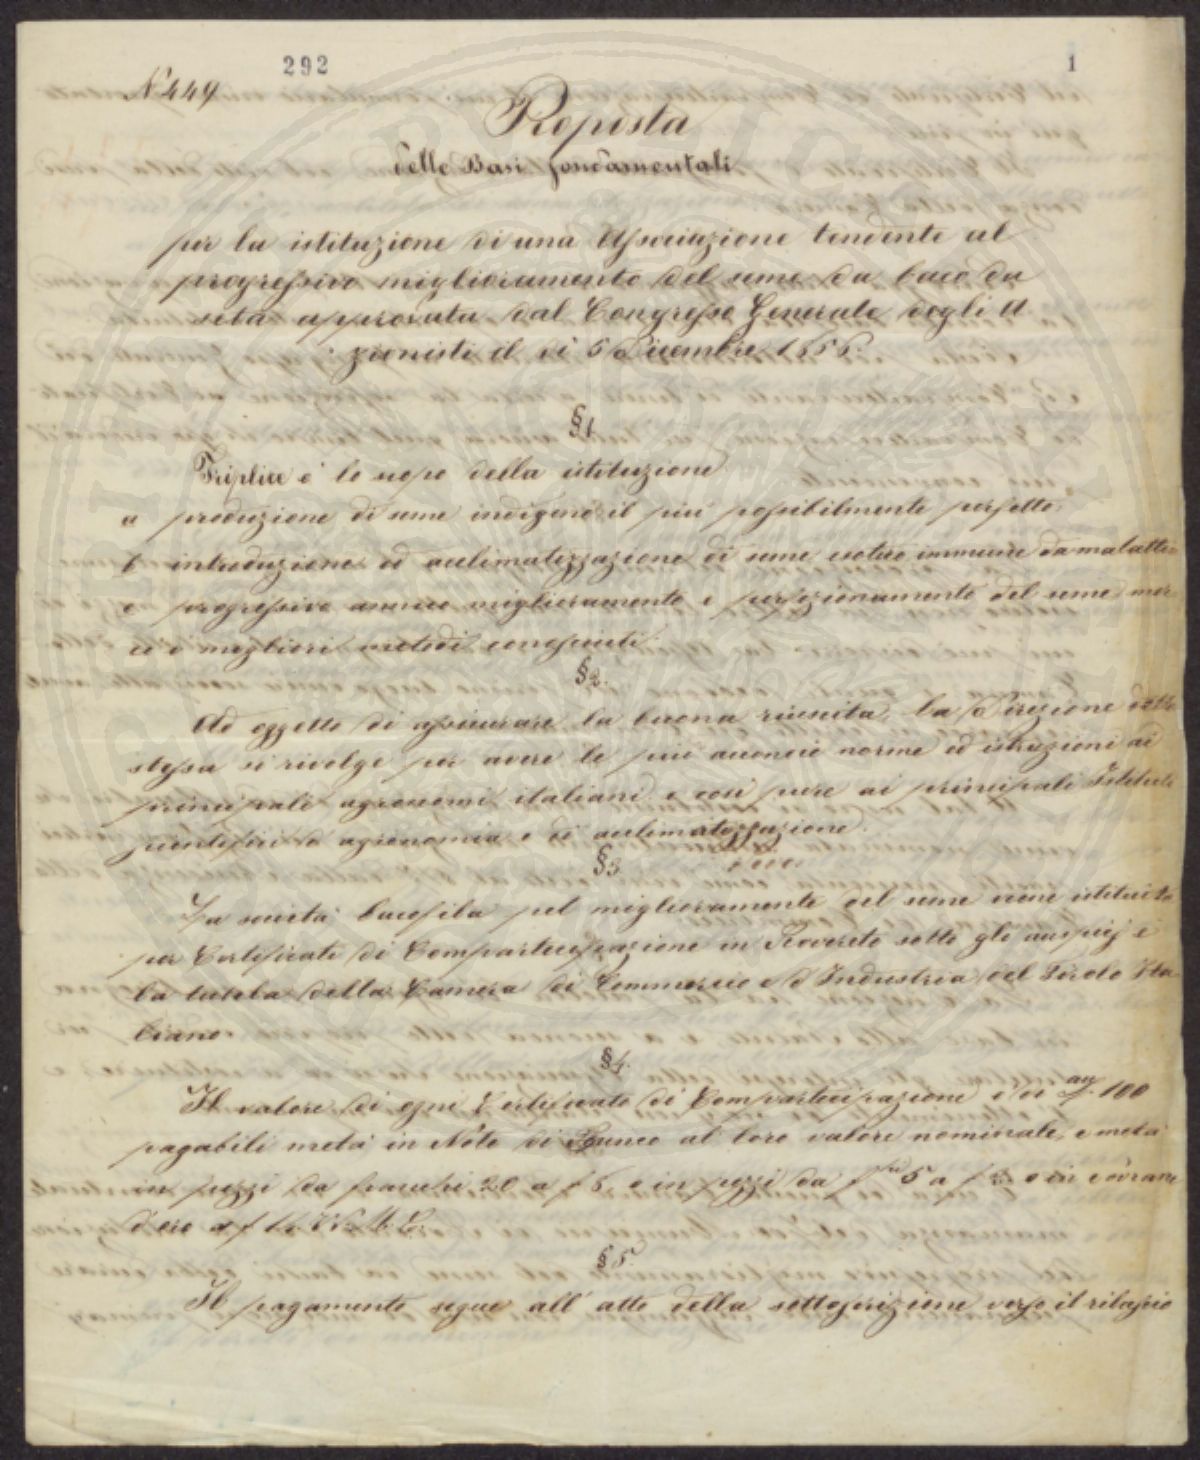 292
1
N° 449
Proposta
delle Basi fondamentali
per la istituzione di una Associazione tendente al
progressivo miglioramento del seme da baco da
seta approvata dal Congresso Generale degli A
zionisti il dì 6 Dicembre 185
§1.
Triplice è lo scopo della istituzione
a produzione di seme indigeno il più possibilmente perfetto,
b introduzione ed acclimatizzazione di seme estero immune da malattie
c progressivo annuo miglioramento e perfezionamento del seme mer
cè i migliori metodi conosciuti.
§2.
Ad oggetto di assicurare la buona riuscita, la Direzione della
stessa si rivolge per avere le più acconcie norme ed istruzioni ai
principali agronomi italiani e così pure ai principali Istituti
scientifici d'agronomia e di acclimatizzazione.
§3
La società bacofila pel miglioramento del seme viene istituita
per Certificati di Compartecipazione in Rovereto sotto gli auspicj e
la tutela della Camera di Commercio e d'Industria del Tirolo Ita
liano.
§4.
Il valore di ogni Certificato di Compartecipazione è di 100
pagabili metà in Note di Banco al loro valore nominale, e metà
in pezzi da franchi 20 a f 8 e in pezzi da 5 a f 2 e in sovrane
d'oro a f
§5.
Il pagamento segue all'atto della sottoscrizione verso il rilascio